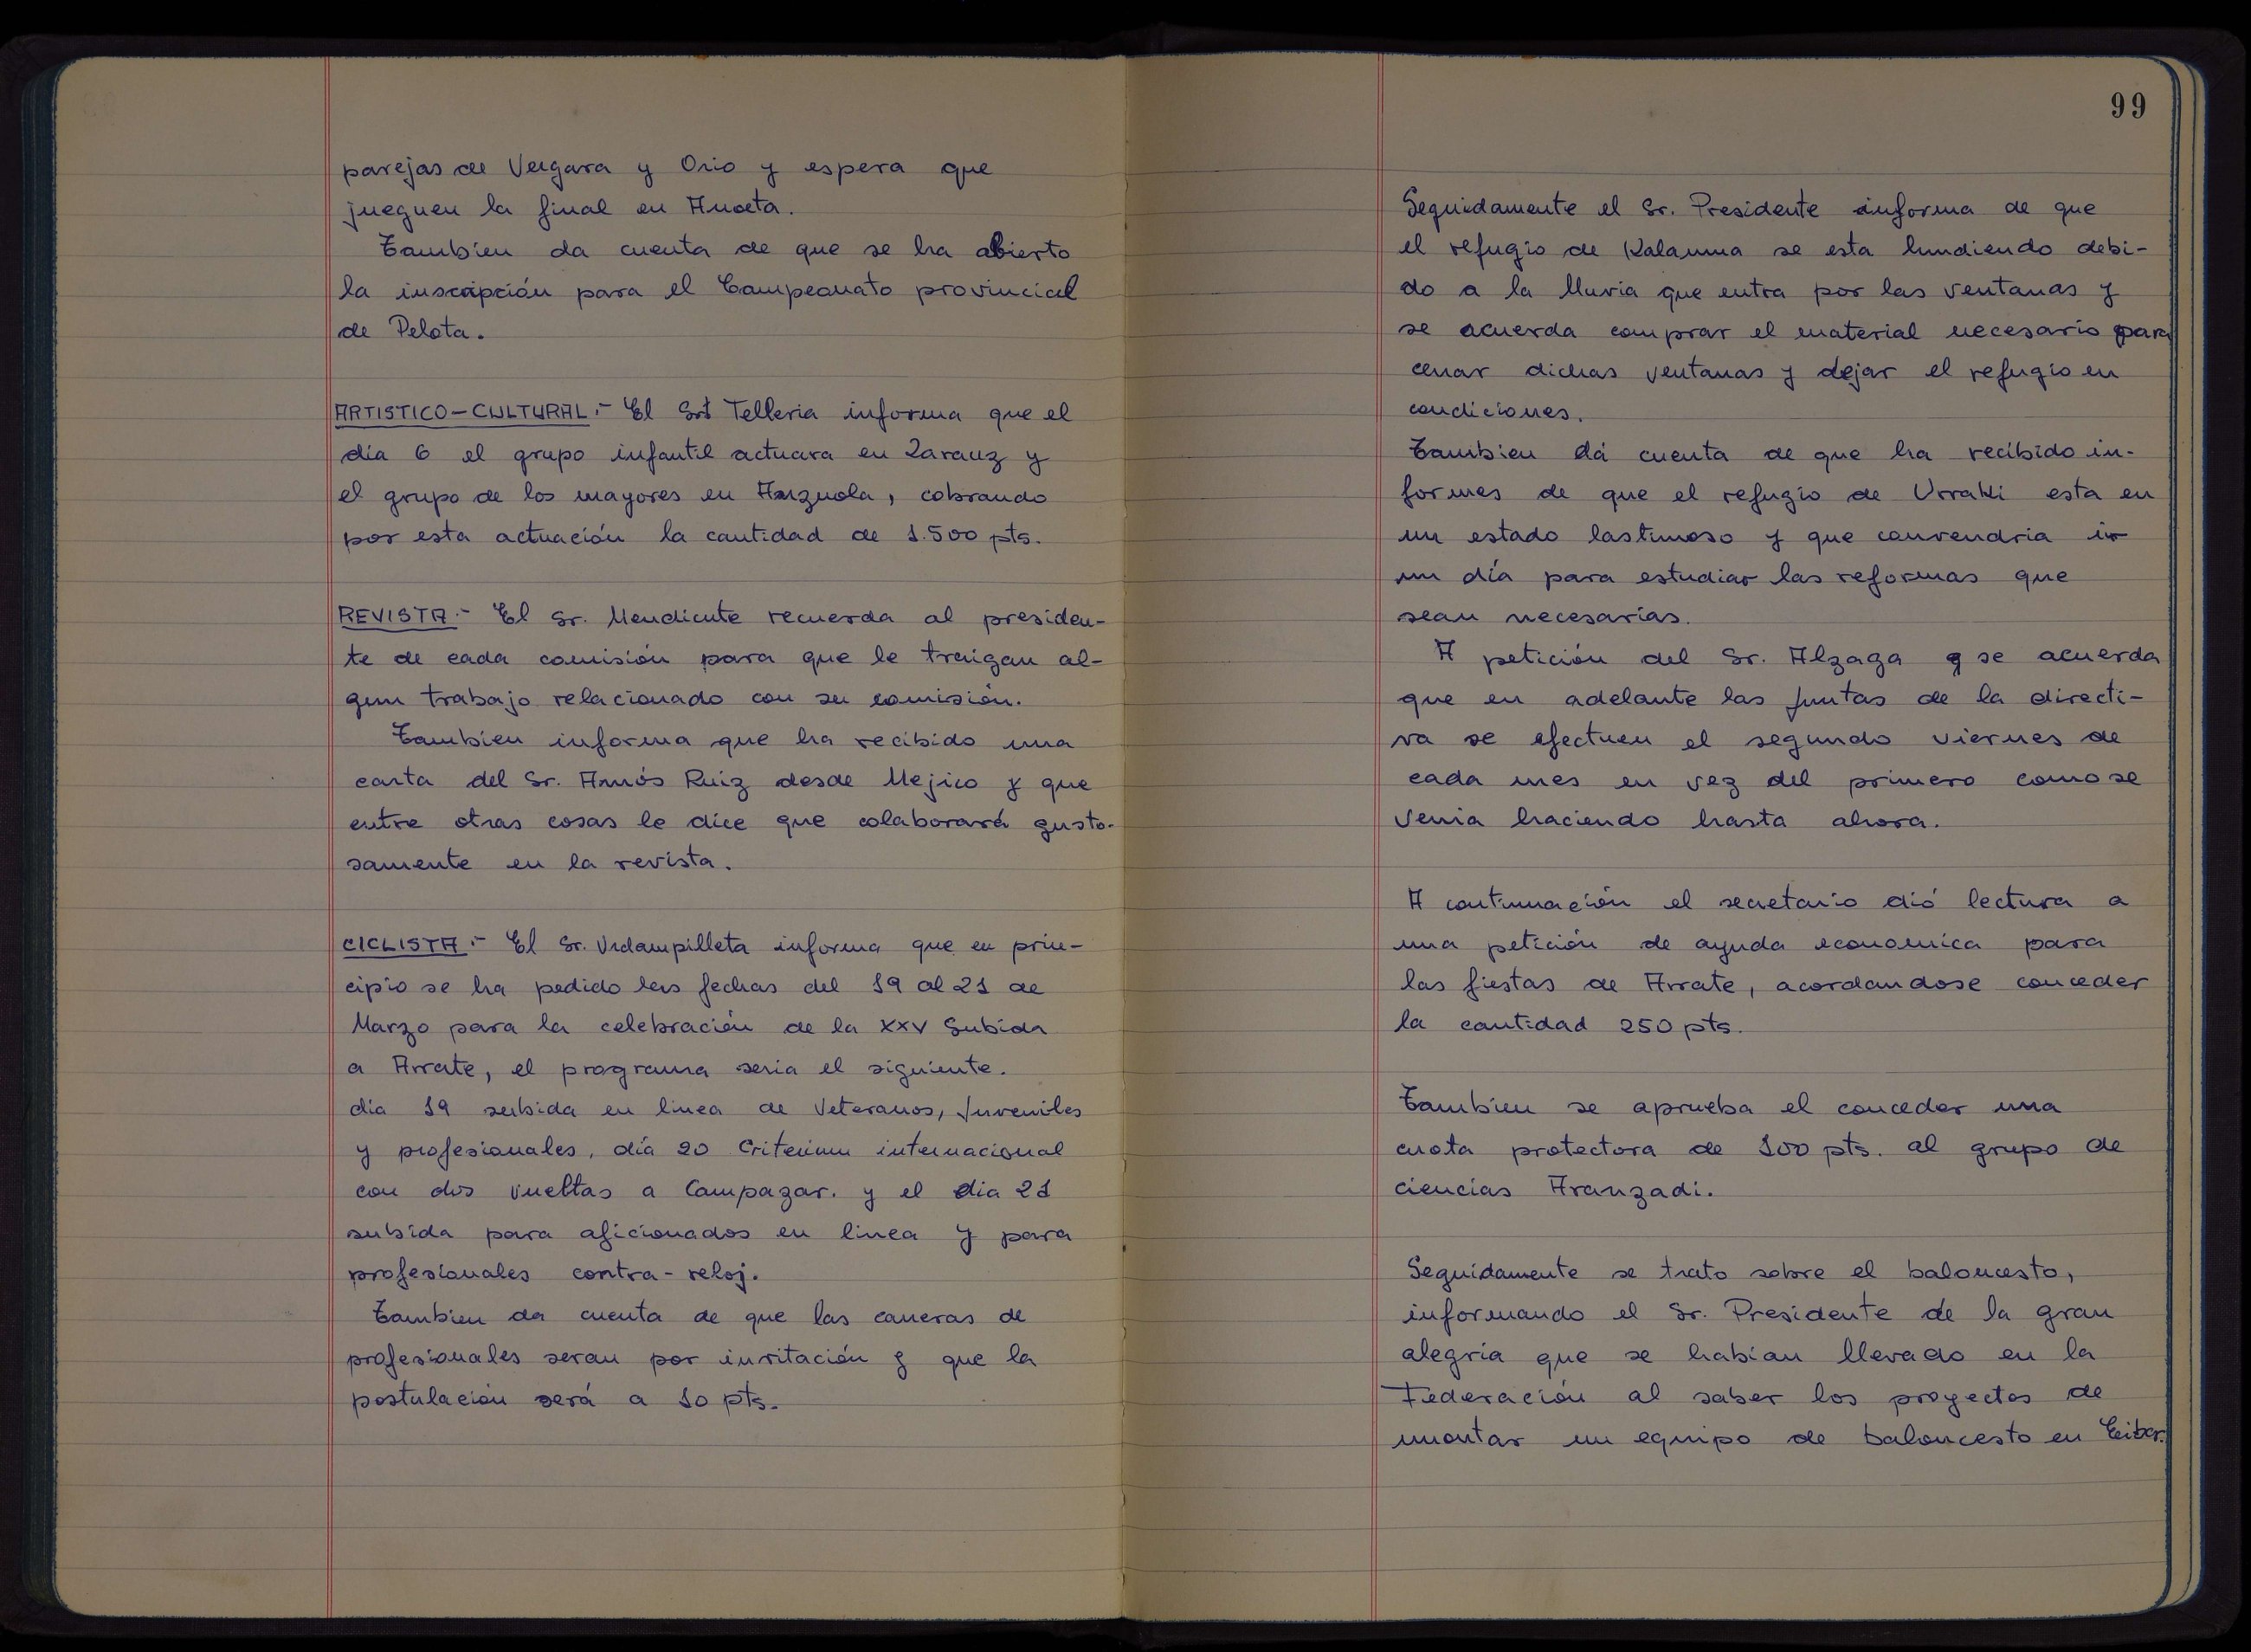 parejas de Vergara y Orio y espera que
jueguen la final en Anoeta.
Tambien da cuenta de que se ha abierto
la inscripción para el Campeonato provincial
de Pelota.
ARTISTICO-CULTURAL.- El Srt Telleria informa que el
día 6 el grupo infantil actuara en Zarauz y
el grupo de los mayores en Anzuola, cobrando
por esta actuación la cantidad de 1.500 pts.
REVISTA.- El Sr. Mendicute recuerda al presiden-
te de cada comisión para que le traigan al-
gun trabajo relacionado con su comisión.
Tambien informa que ha recibido una
carta del Sr. Amós Ruiz desde Mejico y que
entre otras cosas le dice que colaborará gusto-
samente en la revista.
CICLISTA.- El Sr. Vidampilleta informa que en prin-
cipio se ha pedido las fechas del 19 al 21 de
Marzo para la celebración de la XXV Subida
a Arrate, el programa seria el siguiente.
día 19 subida en linea de Veteranos, Juveniles
y profesionales, día 20 Criterium internacional
con dos vueltas a Campazar. y el dia 21
subida para aficionados en linea y para
profesionales contra-reloj.
Tambien da cuenta de que las carreras de
profesionales seran por invitación y que la
postulación será a 10 pts.
99
Seguidamente el Sr. Presidente informa de que
el refugio de Kalamua se esta hundiendo debi-
do a la lluvia que entra por las ventanas y
se acuerda comprar el material necesario para
cerrar dichas ventanas y dejar el refugio en
condiciones.
Tambien dá cuenta de que ha recibido in-
formes de que el refugio de Urraki esta en
un estado lastimoso y que convendria ir
un día para estudiar las reformas que
sean necesarias.
A petición del Sr. Alzaga q se acuerda
que en adelante las Juntas de la directi-
va se efectuen el segundo viernes de
cada mes en vez del primero como se
venia haciendo hasta ahora.
A continuación el secretario dió lectura a
una petición de ayuda economica para
las fiestas de Arrate, acordandose conceder
la cantidad 250 pts.
Tambien se aprueba el conceder una
cuota protectora de 100 pts. al grupo de
ciencias Aranzadi.
Seguidamente se trato sobre el baloncesto,
informando el Sr. Presidente de la gran
alegria que se habian llevado en la
Federación al saber los proyectos de
montar un equipo de baloncesto en Eibar.